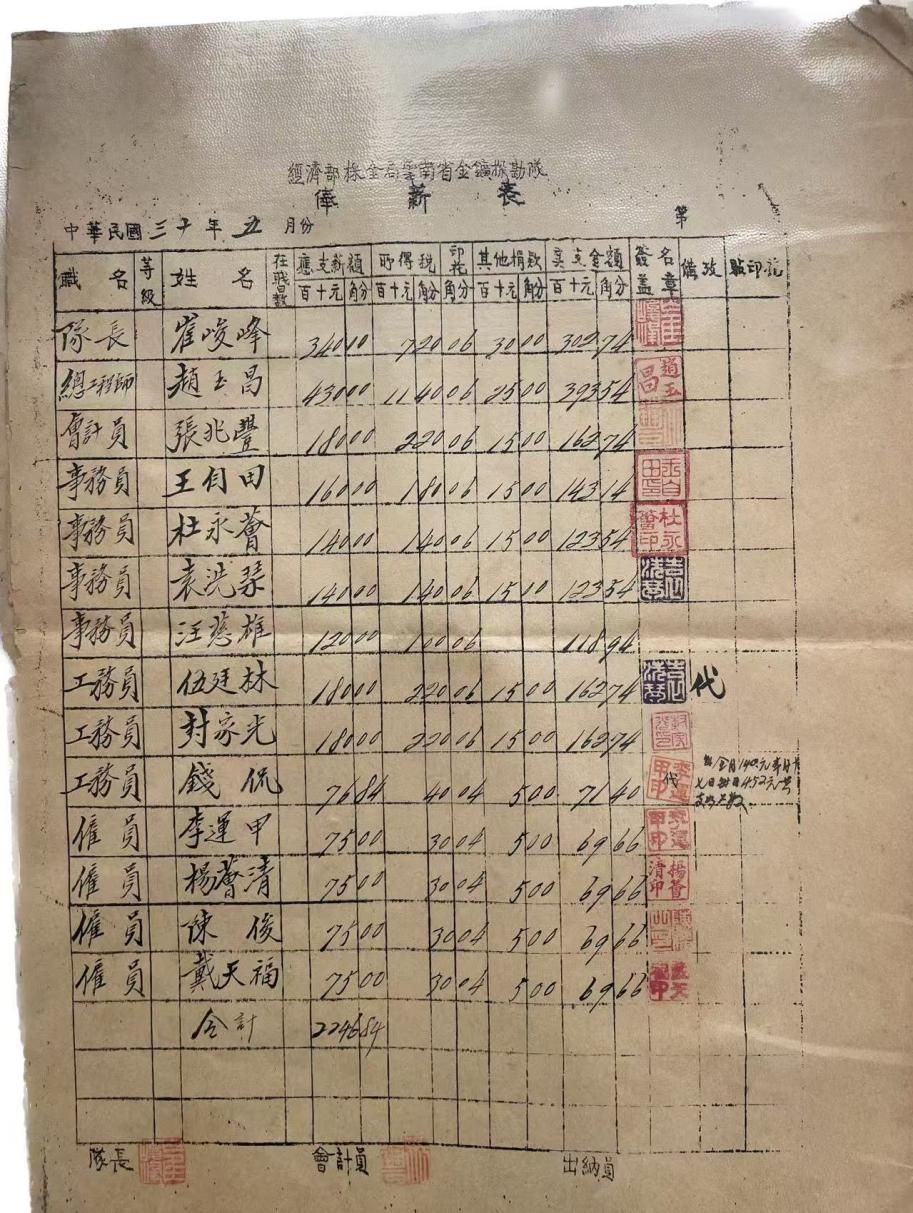 經濟部採金局雲南省金鑛探勘隊
俸薪表
中華民國三十年五月份 第
職名 等級 姓名 在職日數 應支薪額 所得稅 印花 其他捐款 實支金額 簽名蓋章 備攷 貼印花
百十元角分 百十元角分 角分 百十元角分 百十元角分
隊長 崔峻峰 34000 720 06 3000 30274
總工程師 趙玉昌 43000 1140 06 2500 39354
會計員 張兆豐 18000 220 06 1500 16274
事務員 王自田 16000 180 06 1500 14314
事務員 杜永薈 14000 140 06 1500 12354
事務員 袁洗琴 14000 140 06 1500 12354
事務員 汪慈雄 12000 100 06 11894
工務員 伍廷林 18000 220 06 1500 16274 代
工務員 封家光 18000 220 06 1500 16274
工務員 錢侃 7684 40 04 500 7140 代
僱員 李運甲 7500 30 04 500 6966
僱員 楊薈清 7500 30 04 500 6966
僱員 陳俊 7500 30 04 500 6966
僱員 戴天福 7500 30 04 500 6966
合計 224684
隊長 會計員 出納員